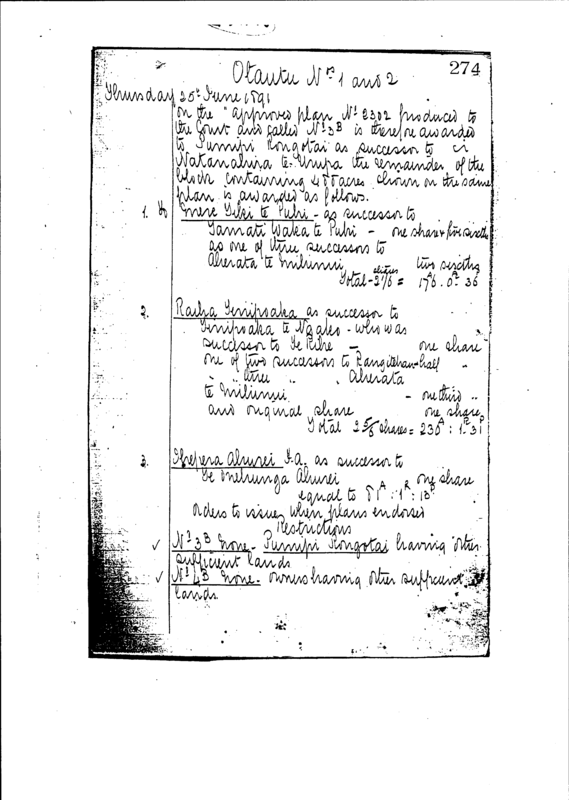 274
Otautu Nos 1 and 2
Thursday 25th June 1891
on the approved plan No 2302 produced to
the Court and called No 3B is therefore awarded
to Pumipi Kongotai as successor to
Watanahira te Urupa the remainder of the
block containing acres shown on the same
plan is awarded as follows.
1. Mere Tiki te Puhi - as successor to
Tamati Waka te Puhi - one share
as one of three successors to
Aherata te Mihinui two sixths
Total - = 176. 0. 36
2. Raiha as successor to
te Ngaho - who was
successor to Te Kehe - one share
one of two successors to half "
" " three " " Aherata
te Mihinui - one third "
and original share one share
Total 2 5/6 shares = 230A : 1R 31P
3. F.A. as successor to
Te Onehunga Ahurei one share
equal to 81A : 1R : 13P
Orders to issue when plans endorsed
Restrictions
✓ No 3B None - Pumipi Kongotai having other
sufficient lands
✓ No 4B None - owners having other sufficient
lands.